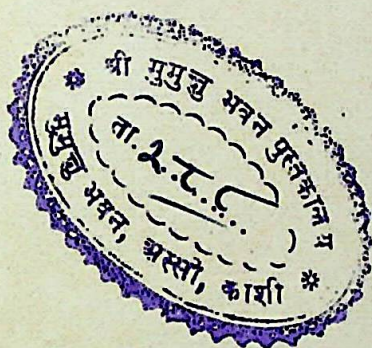 श्री मुमुक्षु भवन पुस्तकालय
ता. २.८.८....
मुमुक्षु भवन, अस्सी, काशी